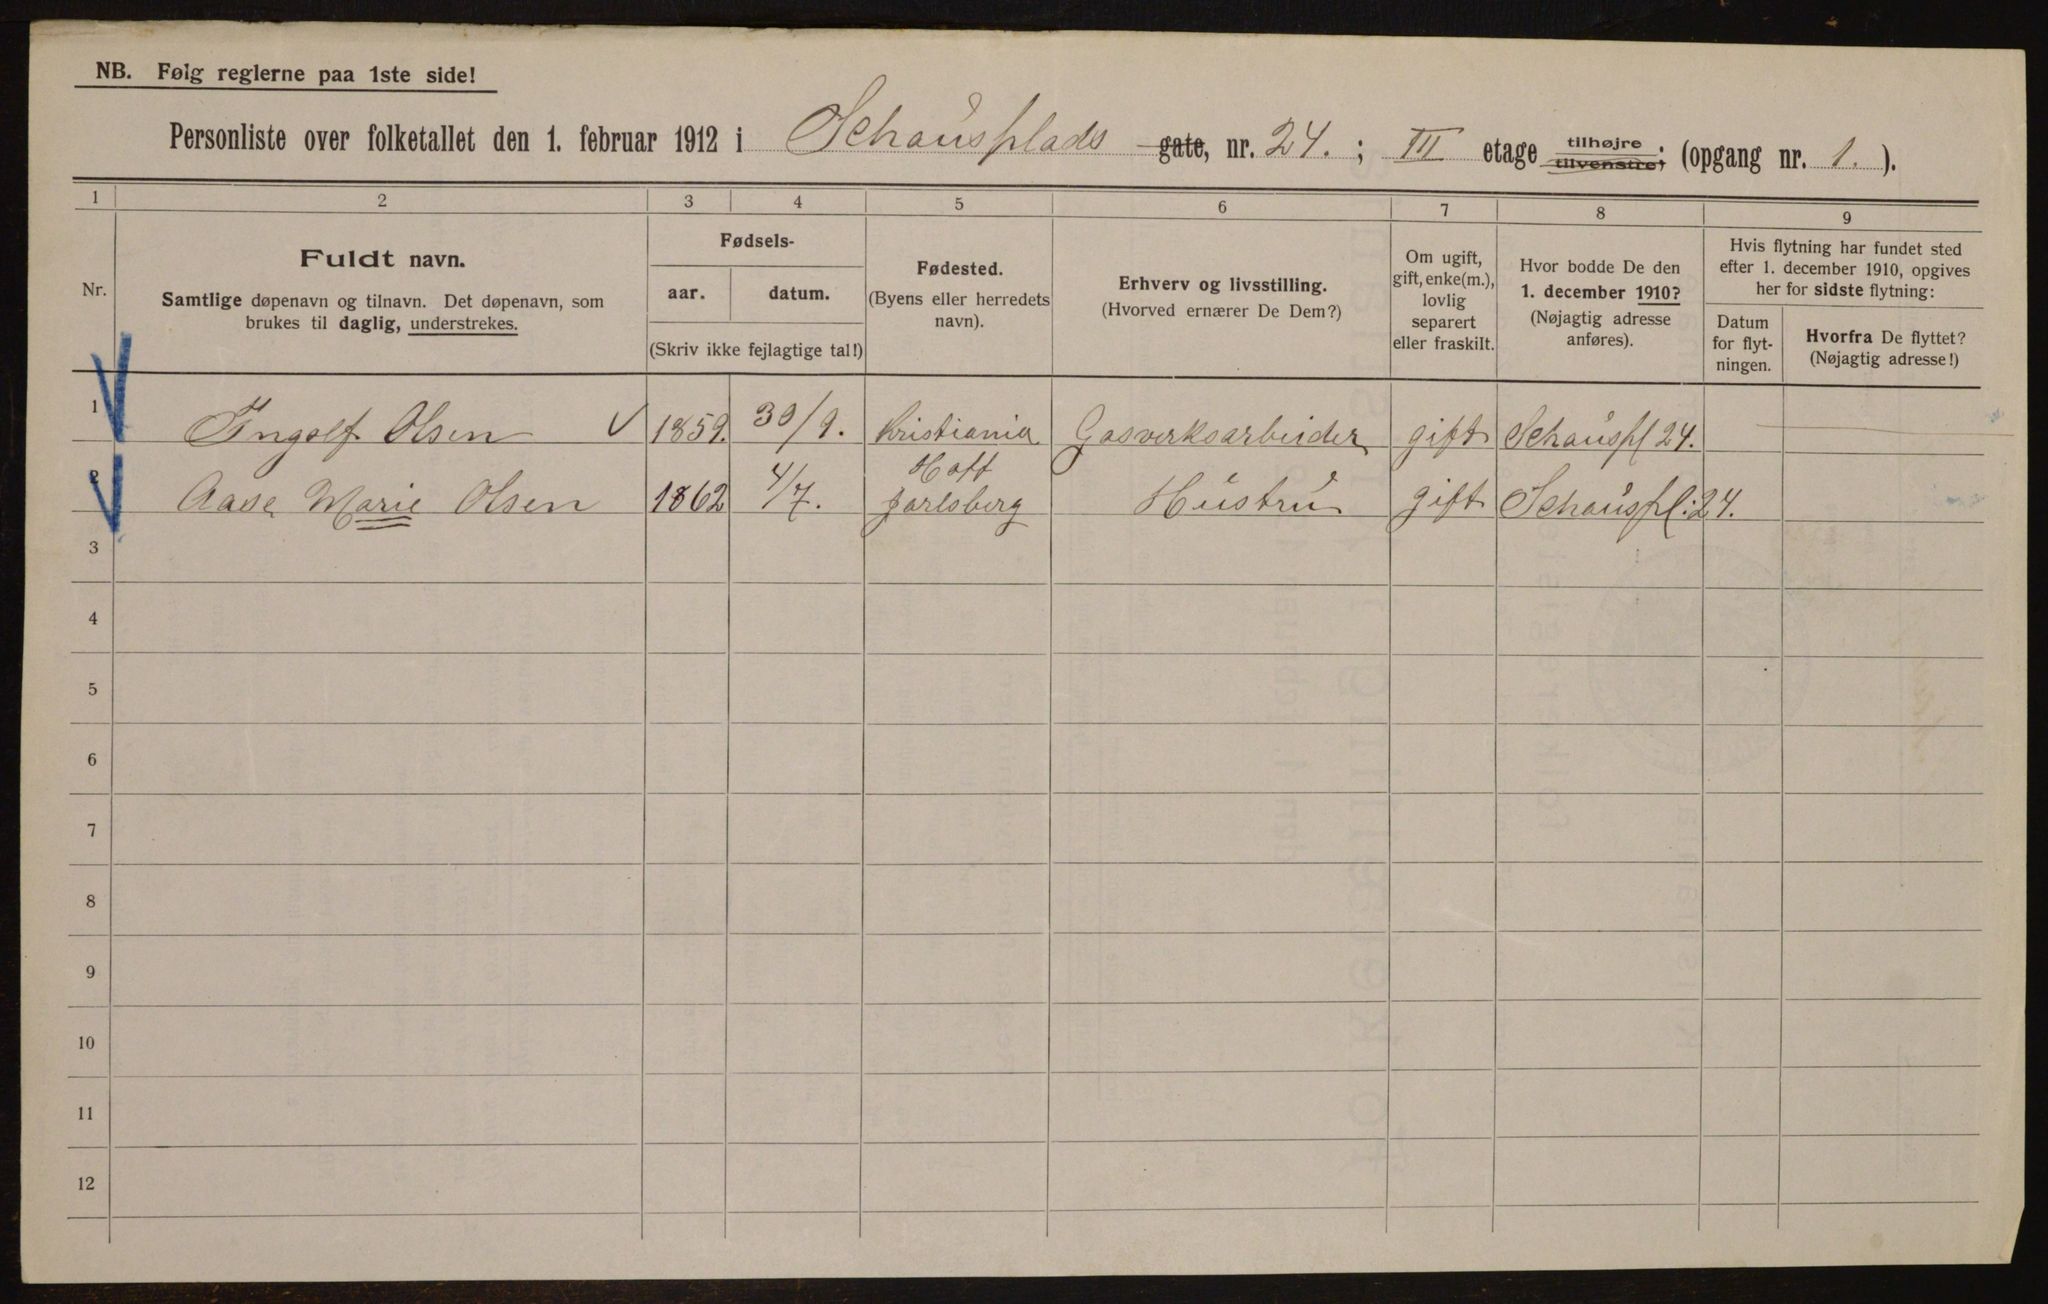 NB. Følg reglerne paa 1ste side!
Personliste over folketallet den 1. februar 1912 i Schausplads gate, nr. 24. ; III etage tilhøjre tilvenstre; (opgang nr. 1. ).
1 2 3 4 5 6 7 8 9
Nr.
Fuldt navn.
Samtlige døpenavn og tilnavn. Det døpenavn, som
brukes til daglig, understrekes.
Fødsels-
aar. datum.
(Skriv ikke fejlagtige tal!)
Fødested.
(Byens eller herredets
navn).
Erhverv og livsstilling.
(Hvorved ernærer De Dem?)
Om ugift,
gift, enke(m.),
lovlig
separert
eller fraskilt.
Hvor bodde De den
1. december 1910?
(Nøjagtig adresse
anføres).
Hvis flytning har fundet sted
efter 1. december 1910, opgives
her for sidste flytning:
Datum
for flyt-
ningen.
Hvorfra De flyttet?
(Nøjagtig adresse!)
1 Ingolf Olsen 1859. 30/9. Kristiania Gasverksarbeider gift Schauspl 24.
2 Aase Marie Olsen 1862 4/7. Hoff
Jarlsberg Hustru gift Schauspl. 24.
3
4
5
6
7
8
9
10
11
12